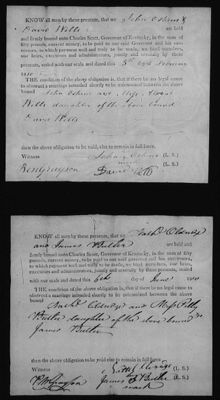 KNOW all men by these presents, that we John Adkins &
David Wells are held
and firmly bound unto Charles Scott, Governor of Kentucky, in the sum of
fifty pounds, current money, to be paid to our said Governor and his
successors, to which payment well and truly to be made, we bind ourselves, our
heirs, executors, and administrators, jointly and severally, firmly by these
presents, sealed with our seals and dated this 5th day of February
THE condition of the above obligation is, that if there be no legal cause
to obstruct a marriage intended shortly to be solemnized between the above
bound John Adkins and Miss
Wells daughter of the above bound
David Wells
then the above obligation to be void, else to remain in full force.
Witness John Adkins (L. S.)
Ben Grayson David Wells (L. S.)
KNOW all men by these presents, that we
and James Butler are held
and firmly bound unto Charles Scott, Governor of Kentucky, in the sum of
fifty pounds, current money, to be paid to our said Governor and his
successors, to which payment well and truly to be made, we bind ourselves, our
heirs, executors, and administrators, jointly and severally, firmly by these presents,
sealed with our seals and dated this 6th day of June
THE condition of the above obligation is, that if there be no legal cause to
obstruct a marriage intended shortly to be solemnized between the above
bound and Miss Polly
Butler daughter of the above bound
James Butler
then the above obligation to be void, else to remain in full force.
Witness (L. S.)
Grayson James Butler (L. S.)
mark